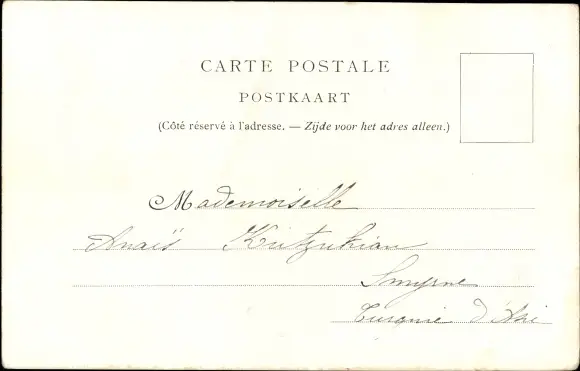 CARTE POSTALE
POSTKAART
(Côté réservé à l'adresse. — Zijde voor het adres alleen.)
Mademoiselle
Anaïs
Smyrne
Turquie d'Asie